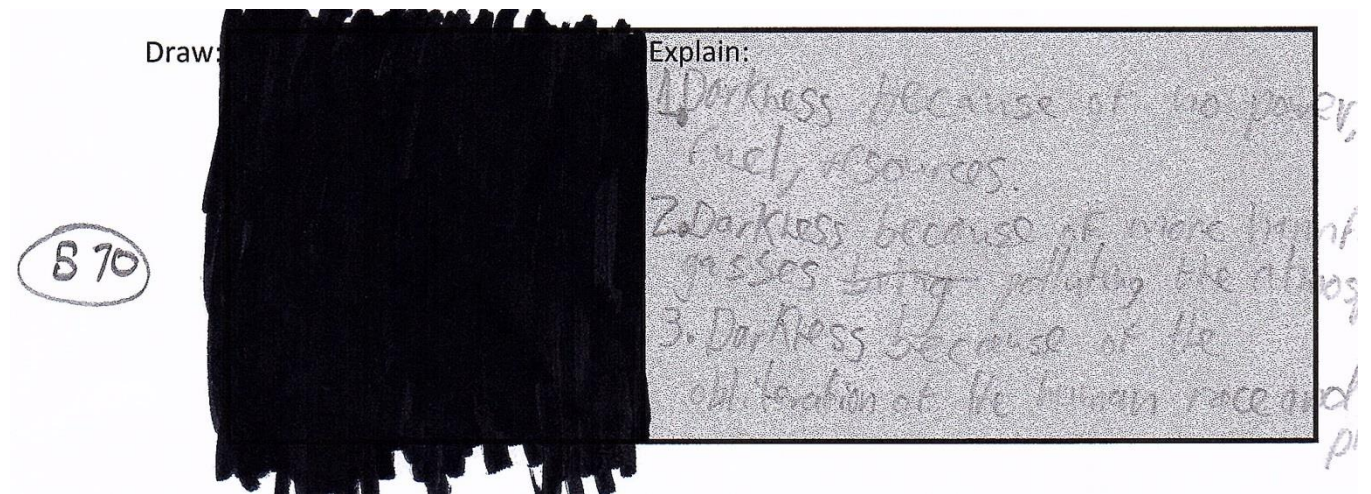 Draw:
Explain:
1. Darkness because of no power,
fuel, resources.
2. Darkness because of more
gasses polluting the
3. Darkness because of the
obliteration of the human race and
B 70